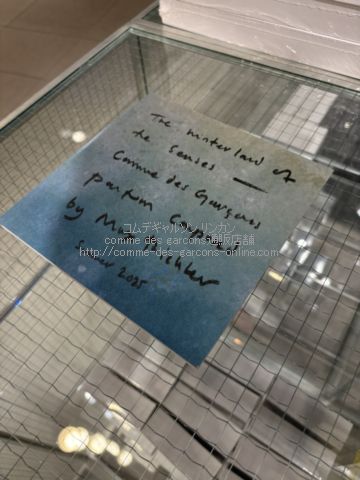 The hinterland of
the senses —
Comme des Garçons
parfum
by
2025
コムデギャルソンリンカン
comme des garcons通販店舗
http://comme-des-garcons-online.com